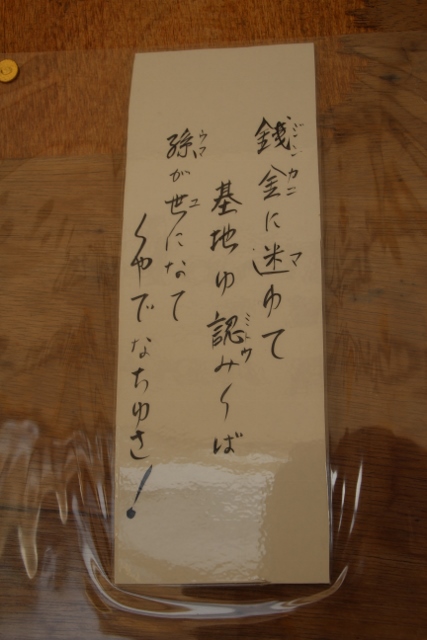 ジンカニ マ
銭金に迷ゆて
基地ゆ認みくば
ウマ ユ
孫が世になて
くやでなちゆさ!